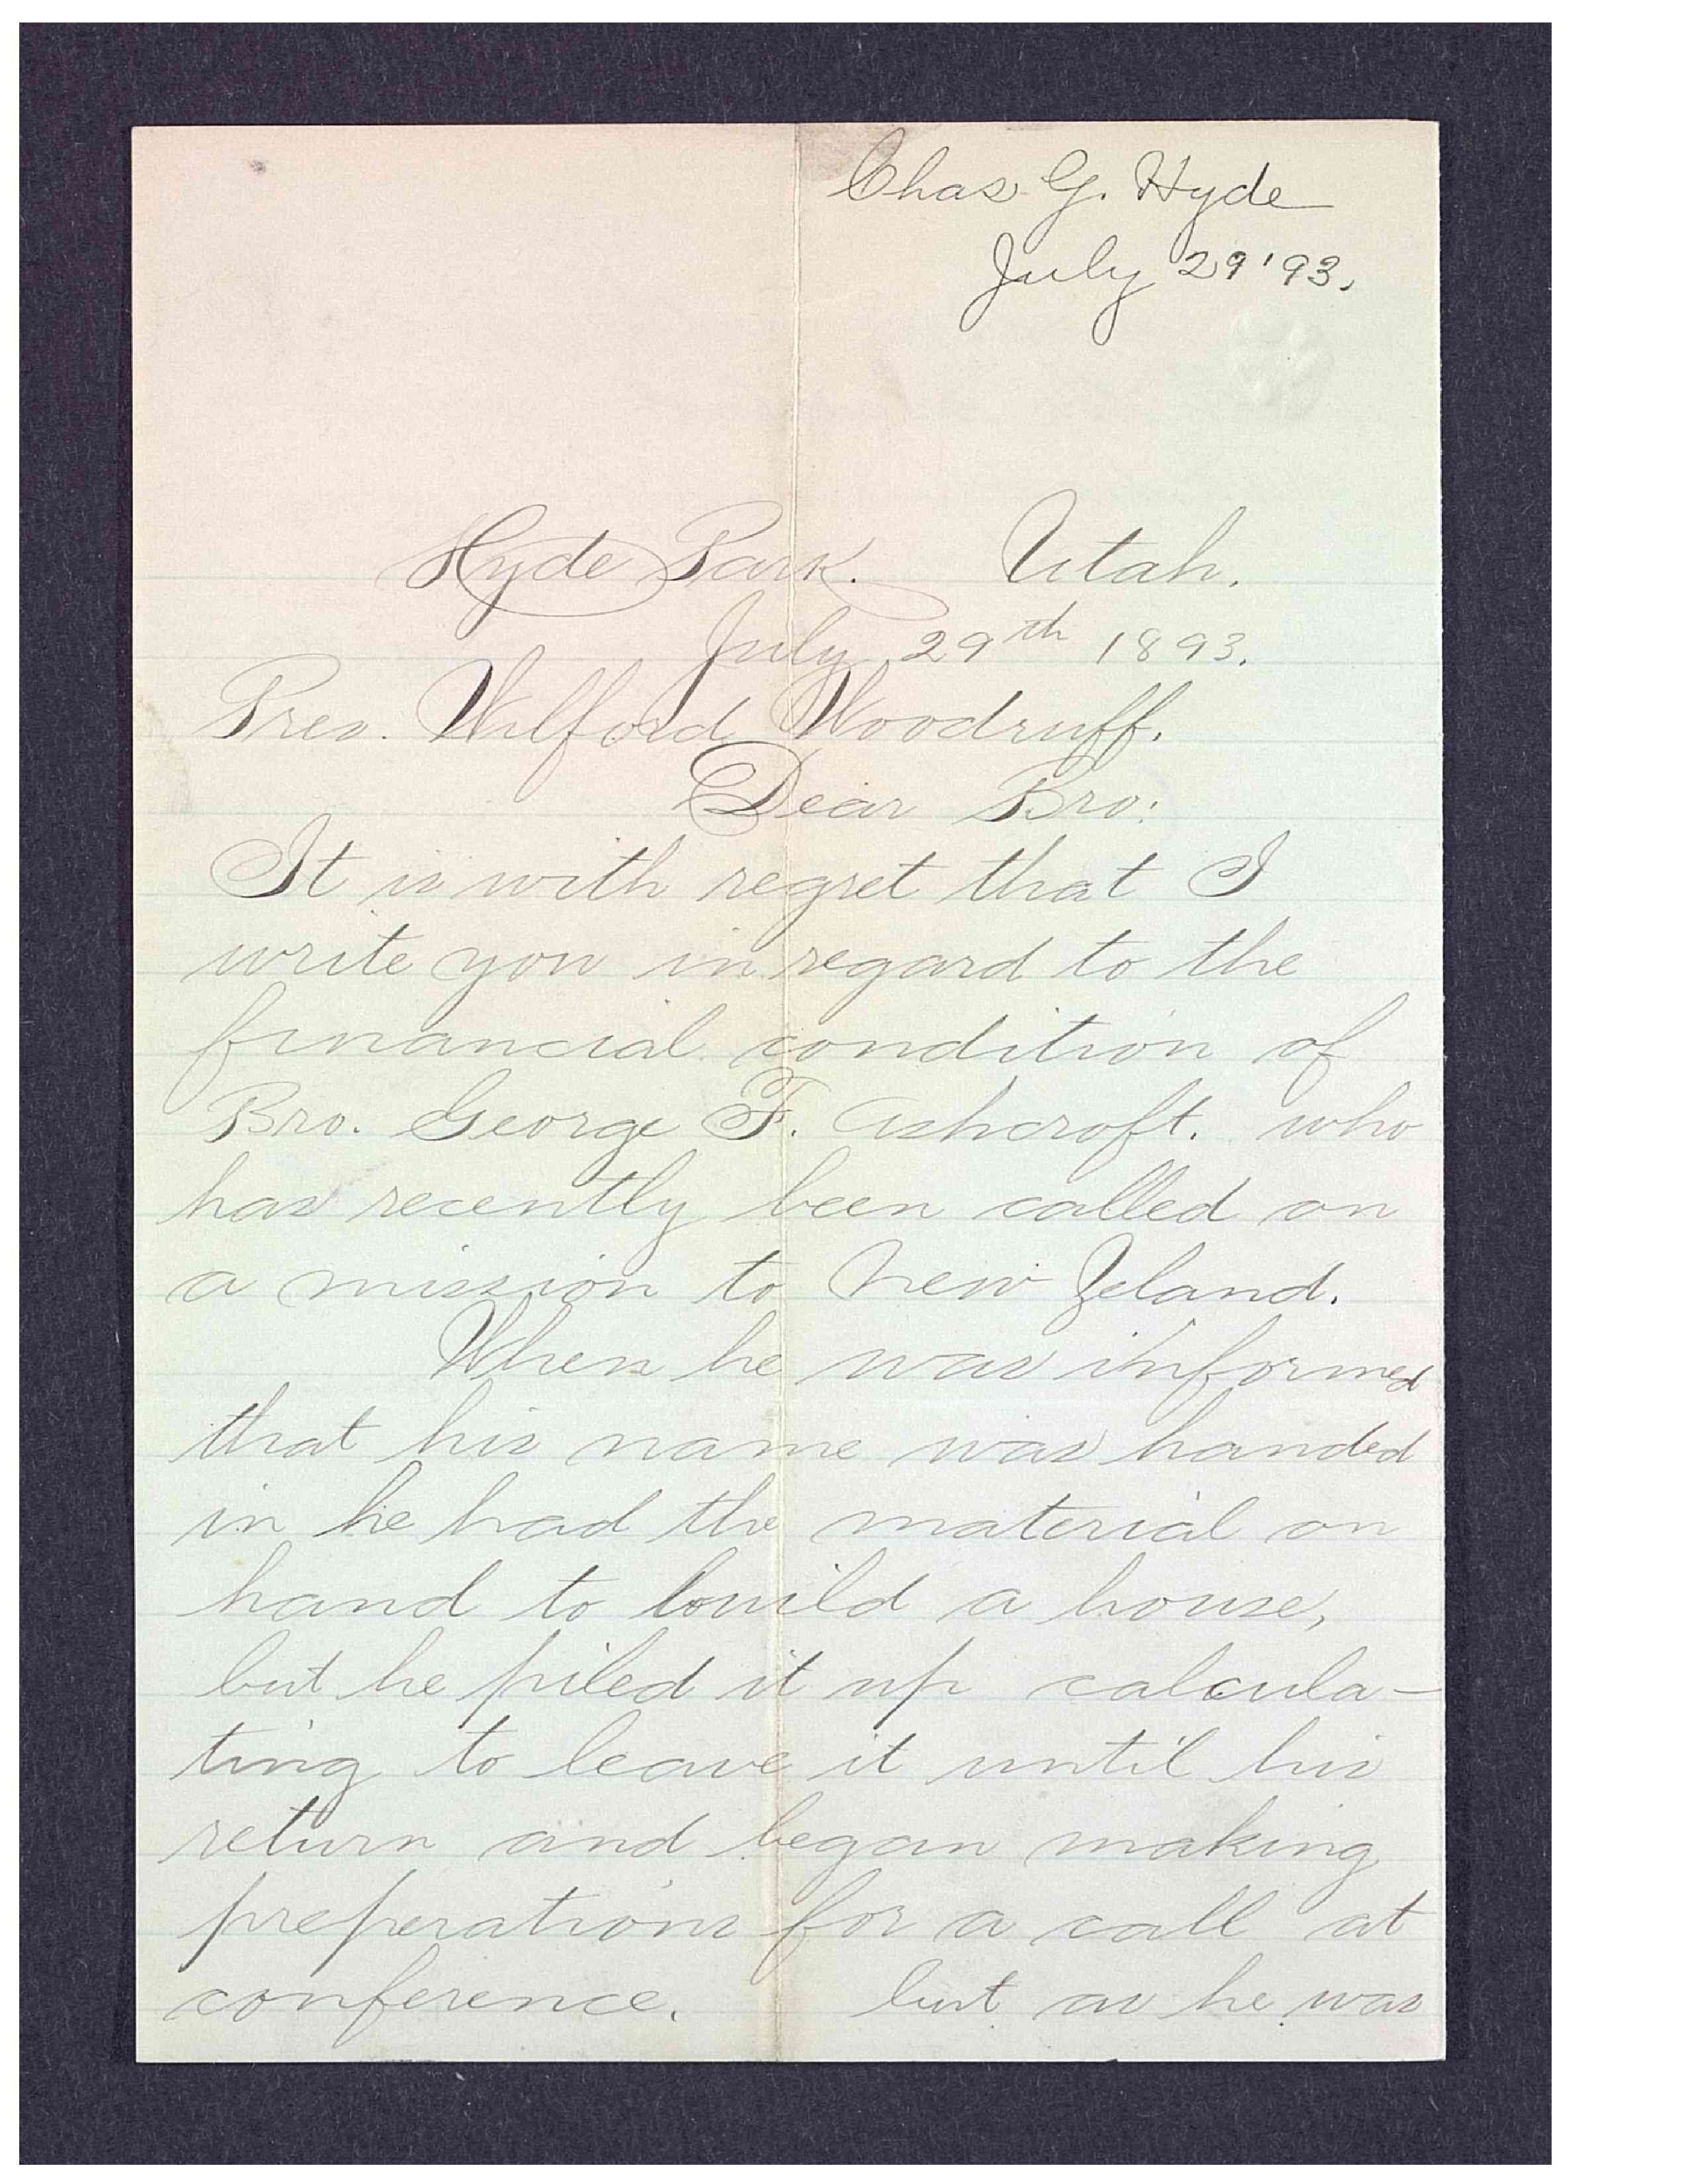 Chas. G. Hyde
July 29 '93.
Hyde Park. Utah.
July 29th 1893.
Pres. Wilford Woodruff.
Dear Bro:
It is with regret that I
write you in regard to the
financial condition of
Bro. George F. Ashcroft. who
has recently been called on
a mission to New Zeland.
When he was informed
that his name was handed
in he had the material on
hand to build a house,
but he piled it up calcula-
ting to leave it until his
return and began making
preperations for a call at
conference. but as he was